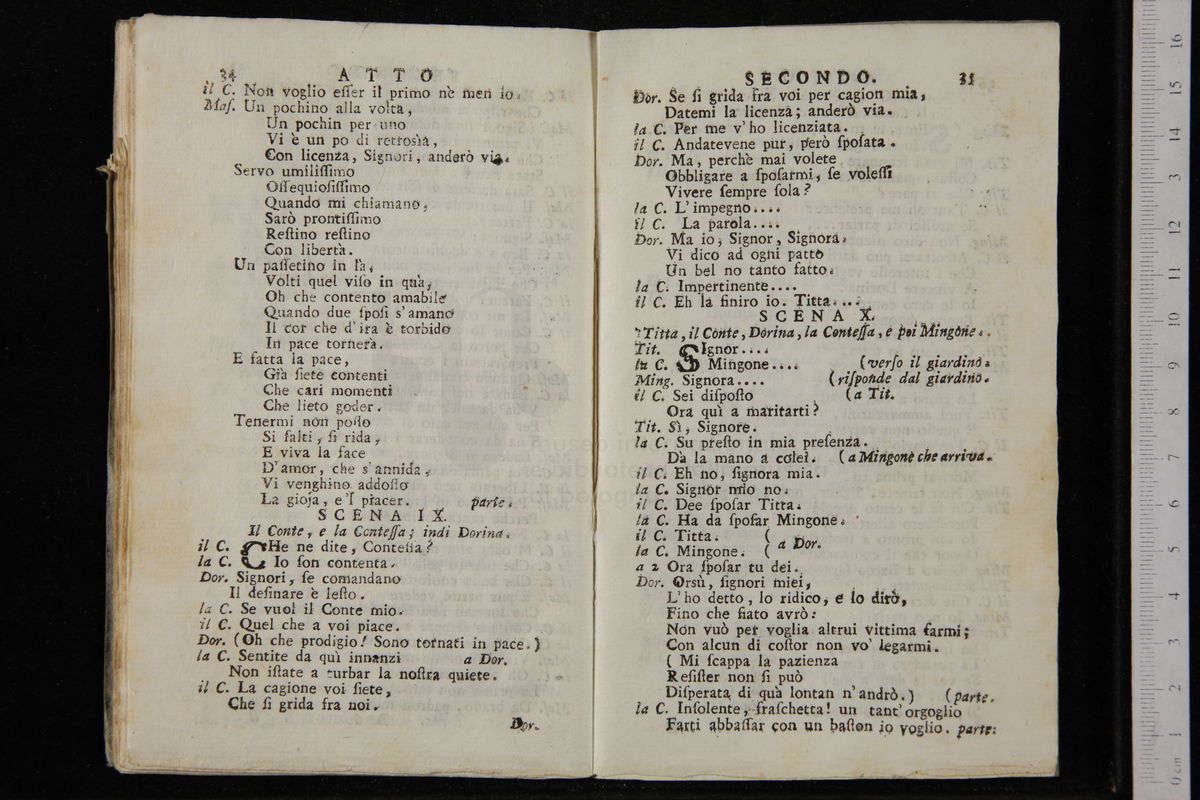 34 ATTO
il C. Non voglio eſſer il primo nè men io.
Maſ. Un pochino alla volta,
Un pochin per uno
Vi è un po di retrosìa,
Con licenza, Signori, anderò via.
Servo umiliſſimo
Oſſequioſiſſimo
Quando mi chiamano,
Sarò prontiſſimo
Reſtino reſtino
Con libertà.
Un paſſetino in là,
Volti quel viſo in quà,
Oh che contento amabile
Quando due ſpoſi s'amano
Il cor che d'ira è torbido
In pace tornerà.
E fatta la pace,
Già ſiete contenti
Che cari momenti
Che lieto goder.
Tenermi non poſſo
Si ſalti, ſi rida,
E viva la face
D'amor, che s'annida,
Vi venghino addoſſo
La gioja, e'l piacer. parte.
SCENA IX.
Il Conte, e la Conteſſa; indi Dorina.
il C. CHe ne dite, Conteſſa?
la C. Io ſon contenta.
Dor. Signori, ſe comandano
Il deſinare è leſto.
la C. Se vuol il Conte mio.
il C. Quel che a voi piace.
Dor. (Oh che prodigio! Sono tornati in pace.)
la C. Sentite da quì innanzi a Dor.
Non iſtate a turbar la noſtra quiete.
il C. La cagione voi ſiete,
Che ſi grida fra noi.
Dor.
SECONDO. 35
Dor. Se ſi grida fra voi per cagion mia,
Datemi la licenza; anderò via.
la C. Per me v'ho licenziata.
il C. Andatevene pur, però ſpoſata.
Dor. Ma, perchè mai volete
Obbligare a ſpoſarmi, ſe voleſſi
Vivere ſempre ſola?
la C. L'impegno....
il C. La parola....
Dor. Ma io, Signor, Signora,
Vi dico ad ogni patto
Un bel no tanto fatto.
la C. Impertinente....
il C. Eh la finiro io. Titta....
SCENA X.
Titta, il Conte, Dorina, la Conteſſa, e poi Mingone.
Tit. SIgnor....
la C. Mingone.... (verſo il giardino.
Ming. Signora.... (riſponde dal giardino.
il C. Sei diſpoſto (a Tit.
Ora quì a maritarti?
Tit. Sì, Signore.
la C. Su preſto in mia preſenza.
Dà la mano a colei. (a Mingone che arriva.
il C. Eh no, ſignora mia.
la C. Signor mio no.
il C. Dee ſpoſar Titta.
la C. Ha da ſpoſar Mingone.
il C. Titta. (
la C. Mingone. ( a Dor.
a 2 Ora ſpoſar tu dei.
Dor. Orsù, ſignori miei,
L'ho detto, lo ridico, e lo dirò,
Fino che fiato avrò:
Non vuò per voglia altrui vittima farmi;
Con alcun di coſtor non vo' legarmi.
( Mi ſcappa la pazienza
Reſiſter non ſi può
Diſperata di quà lontan n'andrò.) (parte.
la C. Inſolente, fraſchetta! un tant'orgoglio
Farti abbaſſar con un baſton io voglio. parte.
0 cm 1 2 3 4 5 6 7 8 9 10 11 12 13 14 15 16